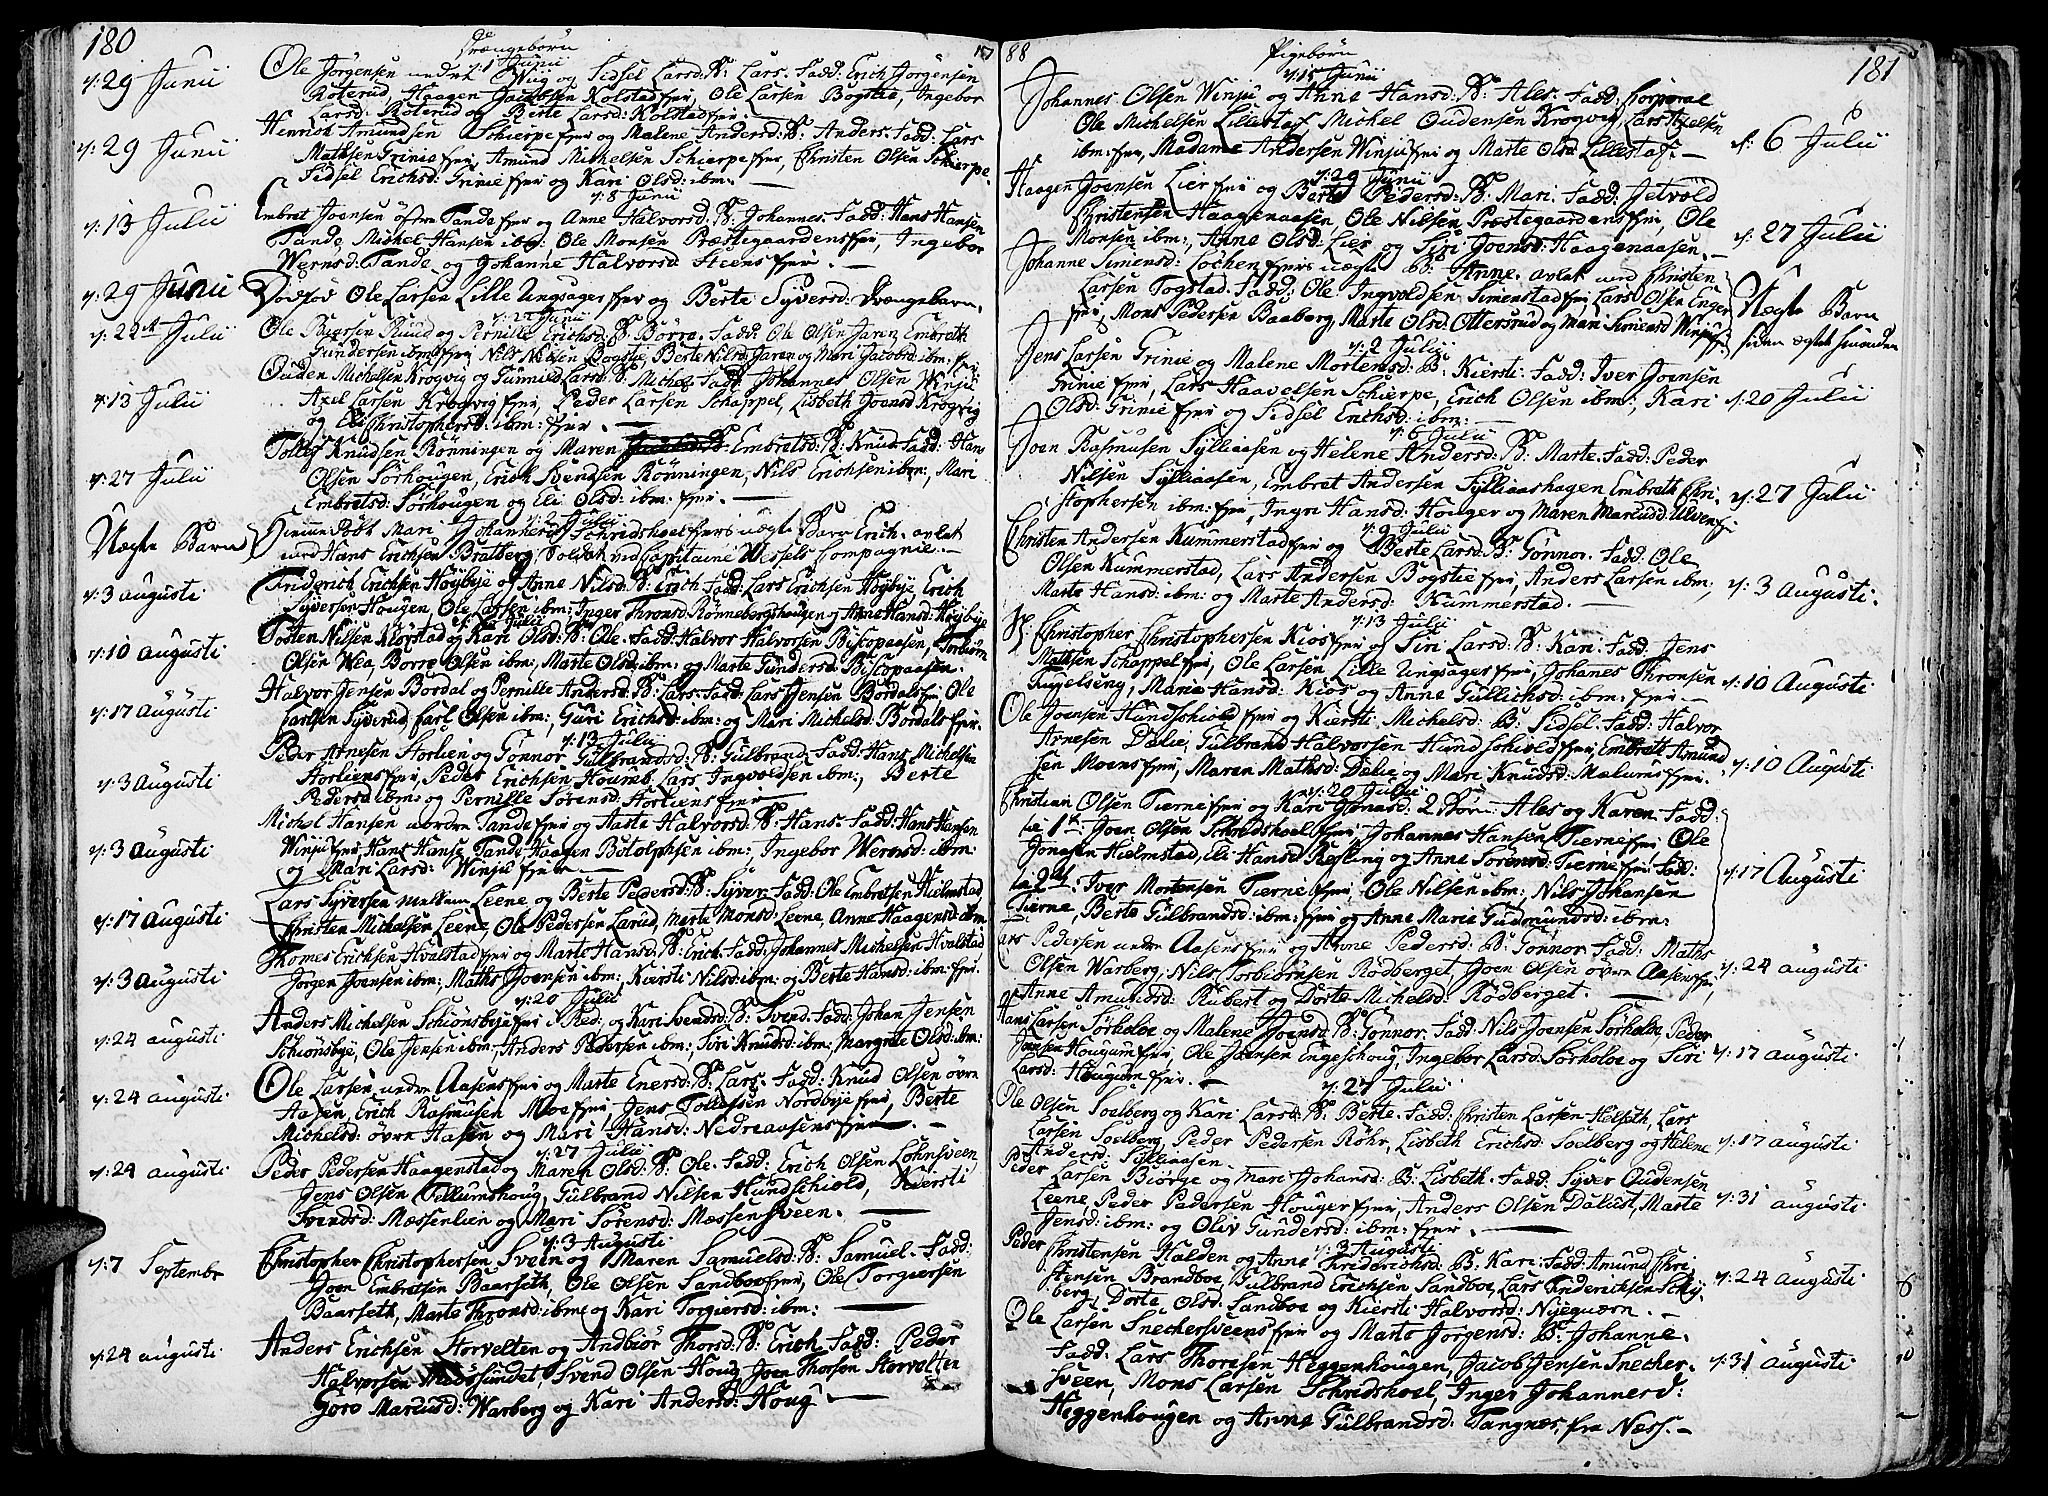 180
Drængebørn
1 Junii
d: 29 Junii
Ole Jörgensen nedre Wiig og Sidsel Larsd: B: Lars. Fadd: Erich Jörgensen
Roterud, Haagen Jacobsen Kolstad, Ole Larsen Bogstie, Ingebor
Larsd: Roterud og Berte Larsd: Kolstad
d: 29 Junii
Henrich Amundsen Schierpe og Malene Andersd: B: Anders. Fadd: Lars
Mathsen Grinie, Amund Michelsen Schierpe, Christen Olsen Schierpe
Sidsel Erichsd: Grinie og Kari Olsd: ibm. —
d: 8 Junii
d: 13 Julii
Embret Joensen öfre Tande og Anne Halvorsd: B: Johannes. Fadd: Hans Hansen
Tande, Michel Hansen ibm: Ole Monsen Præstegaardens, Ingebor
Wernsd: Tande og Johanne Halvorsd: Steens. —
d: 29 Junii
Dödföd Ole Larsen Lille Ungsager og Berte Syversd: Drængebarn.
d: 22 Junii
d: 22de Julii
Ole Buersen Ruud og Pernille Erichsd: B: Börre. Fadd: Ole Olsen Jaren, Embreth
Gundersen ibm: Nils Nilsen Bogstie, Berte Nilsd: Jaren og Mari Jacobsd: ibm:
d: 13 Julii
Ouden Michelsen Krogvig og Gunnild Larsd: B: Michel. Fadd: Johannes Olsen Winju
Axel Larsen Krogvig, Peder Larsen Schappel, Lisbeth Joensd: Krogvig
og Eli Christophersd: ibm: —
d: 27 Julii
Tollef Knudsen Rönningen og Maren Embretsd: B: Knud. Fadd: Hans
Olsen Sörhougen, Erich Svendsen Rönningen, Nils Erichsen ibm:, Mari
Embretsd: Sörhougen og Eli Olsd: ibm: —
d: 2 Julii
Uægte Barn
Hjemme Döbt Mari Johannesd: Schridshoel uægte Barn Erich. avlet
med Hans Erichsen Bratberg, Soldat ved Capitaine Wessels Compagnie. —
d: 3 augusti
Friderich Erichsen Höybye og Anne Nilsd: B: Erich. Fadd: Lars Erichsen Höybye, Erich
Syversen Hougen, Ole Larsen ibm: Inger Thronsd: Rönnebergshougen og Anne Hansd: Höybye
d: 10 augusti
Tosten Nilsen Klöystad og Kari Olsd: B: Ole. Fadd: Halvor Halvorsen Biscopaasen, Torbiörn
Olsen Wea, Borre Olsen ibm:, Marte Olsd: ibm: og Marte Gundersd: Biscopaasen.
d: 17 augusti
Halvor Jensen Bordal og Pernille Andersd: B: Lars. Fadd: Lars Jensen Bordals, Ole
Carlsen Syverud, Carl Olsen ibm:, Guri Erichsd: ibm: og Mari Michelsd: Bordals.
d: 13 Julii
d: 3 augusti
Peder Arnesen Storlien og Gönnor Gulbrandsd: B: Gulbrand. Fadd: Hans Michelsen
Storliens, Peder Erichsen Houmb, Lars Ingvoldsen ibm:, Berte
Pedersd: ibm: og Pernille Sörensd: Storliens
d: 3 augusti
Michel Hansen nordre Tande og Aaste Halvorsd: B: Hans. Fadd: Hans Hansen
Winju, Hans Hansen Tande, Haagen Botolphsen ibm:, Ingebor Wernsd: ibm:
og Mari Larsd: Winju
d: 17 augusti
Lars Syversen mellum Leene og Berte Pedersd: B: Syver. Fadd: Ole Embretsen Hielmstad
Christen Michelsen Leene, Ole Pedersen Larud, Marte Monsd: Leene, Anne Haagensd: ibm:
d: 3 augusti
Thomes Erichsen Hvalstad og Marte Hansd: B: Erich. Fadd: Johannes Michelsen Hvalstad
Jörgen Joensen ibm:, Maths Joensen ibm:, Kiersti Nilsd: ibm: og Berte Hansd: ibm:
d: 20 Julii
d: 24 augusti
Anders Michelsen Schiönsbye i Red: og Kari Svendsd: B: Svend. Fadd: Johan Jensen
Schiönsbye, Ole Jensen ibm:, Anders Pedersen ibm:, Siri Knudsd: ibm:, Margrete Olsd: ibm:
d: 24 augusti
Ole Larsen nedre Aasens og Marte Enersd: B: Lars. Fadd: Knud Olsen övre
Aasen, Erich Rasmusen Moe, Jens Tollefsen Nordbye, Berte
Michelsd: övre Aasen og Mari Hansd: Nedreaasens. —
d: 27 Julii
d: 24 augusti
Peder Pedersen Haagenstad og Maren Olsd: B: Ole. Fadd: Erich Olsen Löhnsveen
Jens Olsen Tillumshoug, Gulbrand Nilsen Hundschiold, Kiersti
Svendsd: Mæssenlien og Mari Sörensd: Mæssensveen. —
d: 3 Augusti
d: 7 Septembr
Christopher Christophersen Sveen og Maren Samuelsd: B: Samuel. Fadd:
Joen Embretsen Baarseth, Ole Olsen Sandboe, Ole Torgiersen
Baarseth, Marte Thronsd: ibm og Kari Torgiersd: ibm: —
d: 24 augusti
Anders Erichsen Storvelten og Andbiör Thorsd: B: Erich. Fadd: Peder
Halvorsen Mössundet, Svend Olsen Houg, Joen Thorsen Storvelten
Goro Marcusd: Warberg og Kari Andersd: Houg —
88
Pigebörn
181
d: 15 Junii
Johannes Olsen Winju og Anne Hansd: B: Ales. Fadd: Corporal
Ole Michelsen Lillestaf, Michel Oudensen Krogvig, Lars Axelsen
ibm:, Madame Andersen Winju og Marte Olsd: Lillestaf. —
d: 6 Julii
d: 29 Junii
Haagen Joensen Lier og Berte Pedersd: B: Mari. Fadd: Jetvold
Christensen Haagenaasen, Ole Nilsen Præstegaardens, Ole
Monsen ibm:, Anne Olsd: Lier og Siri Joensd: Haagenaasen.
d: 27 Julii
Johanne Simensd: Löchen uægte B: Anne. avlet med Christen
Larsen Togstad. Fadd: Ole Ingvoldsen Simenstad, Lars Olsen Enger
Mons Pedersen Baaberg, Marte Olsd: Ottersrud og Mari Simensd: Winju
Uægte Barn
siden ægtet hinanden
d: 2 Julii
Jens Larsen Grinie og Malene Mortensd: B: Kiersti. Fadd: Iver Joensen
Grinie, Lars Haavelsen Schierpe, Erich Olsen ibm:, Kari
Olsd: Grinie og Sidsel Erichsd: ibm:
d: 20 Julii
d: 6 Julii
Joen Rasmusen Sylliaasen og Helene Andersd: B: Marte. Fadd: Peder
Nilsen Sylliaasen, Embret Andersen Sylliaashagen, Embreth Chri-
stophersen ibm:, Ingri Hansd: Houger og Maren Marcusd: Ulven
d: 27 Julii
d: 9 Julii
Christen Andersen Kummerstad og Berte Larsd: B: Gönnor. Fadd: Ole
Olsen Kummerstad, Lars Andersen Bogstie, Anders Larsen ibm;
Marte Hansd: ibm: og Marte Andersd: Kummerstad. —
d: 3 Augusti.
d: 13 Julii
Christopher Christophersen Kios og Siri Larsd: B: Kari. Fadd: Jens
Mathsen Schappel, Ole Larsen Lille Ungsager, Johanes Thronsen
Kugelseng, Marie Hansd: Kios og Anne Gullichsd: ibm: —
d: 10 Augusti
Ole Joensen Hundschiold og Kiersti Michelsd: B: Sidsel. Fadd: Halvor
Arnesen Dælie, Gulbrand Halvorsen Hundschiold, Embreth Amund
sen Moens, Maren Mathsd: Dælie og Mari Knudsd: Mælums.
d: 10 Augusti
d: 20 Julii
Christian Olsen Tierne og Kari Jonasd: 2 Börn Ales og Karen. Fadd:
te 1te: Joen Olsen Schridshoel, Johannes Hansen Tierne, Ole
Jonasen Hielmstad, Eli Hansd: Refling og Anne Sörensd: Tierne, Fadd:
te 2det. Iver Mortensen Tierne, Ole Nilsen ibm:, Nils Johansen
Tierne, Berte Gulbrandsd: ibm: og Anne Marie Gudmundsd: ibm:
d: 17 Augusti
Lars Pedersen nedre Aasens og Anne Pedersd: B: Gönnor. Fadd: Maths
Olsen Warberg, Nils Torbiörnsen Rödberget, Joen Olsen övre Aasens,
Anne Amundsd: Rubert og Dorte Michelsd: Rödberget. —
d: 24 augusti
Hans Larsen Sörholbe og Malene Joensd: B: Gönnor. Fadd: Nils Joensen Sörholbe, Peder
Jensen Hougum, Ole Joensen Engeschoug, Ingebor Larsd: Sörholbe og Siri
Larsd: Hougum. —
d: 17 augusti
d: 27 Julii
Ole Olsen Soelberg og Kari Larsd: B: Berte. Fadd: Christen Larsen Helseth, Lars
Larsen Soelberg, Peder Pedersen Röhr, Lisbeth Erichsd: Soelberg og Helene
Andersd: Sylliaasen
d: 17 augusti
Peder Larsen Biörge og Mari Johansd: B: Lisbeth. Fadd: Syver Oudensen
Leene, Peder Pedersen Houger, Anders Olsen Dalust, Marte
Jensd: ibm: og Oliv Gundersd: ibm: —
d: 31 augusti
d: 3 Augusti
Peder Christensen Halden og Anne Friderichsd: B: Kari. Fadd: Amund Chri-
stensen Brandboe, Gulbrand Erichsen Sandboe, Lars Frideriksen Schy-
berg, Dorte Olsd: Sandboe og Kiersti Halvorsd: Nyeqværn. —
d: 24 augusti
Ole Larsen Snechersveens og Marte Jörgensd: B: Johanne.
Fadd: Lars Thoresen Heggenhougen, Jacob Jensen Snecher-
sveen, Mons Larsen Schridshoel, Inger Johannesd:
Heggenhougen og Anne Gulbrandsd: Tangnæs, fra Næss. —
d: 31 augusti